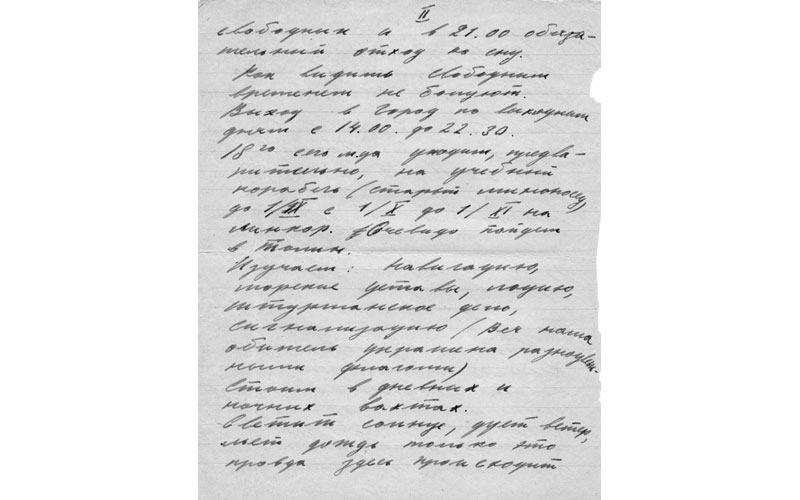 II
свободник и в 21.00 обяза-
тельный отход ко сну.
Как видишь свободным
временем не балуют.
Выход в город по выходным
дням с 14.00. до 22.30.
18го сего м-ца уходим, предва-
рительно, на учебный
корабль (старый миноносец)
до 1/IX с 1/X до 1/XI на
линкор. Очевидо пойдем
в Талин.
Изучаем: навигацию,
морские уставы, лоцию,
штурманское дело,
сигнализацию (Вся наша
обитель украшена разноцвет-
ными флагами)
Стоим в дневных и
ночных вахтах.
Светит солнце, дует ветер,
льет дождь только это
правда здесь происходит